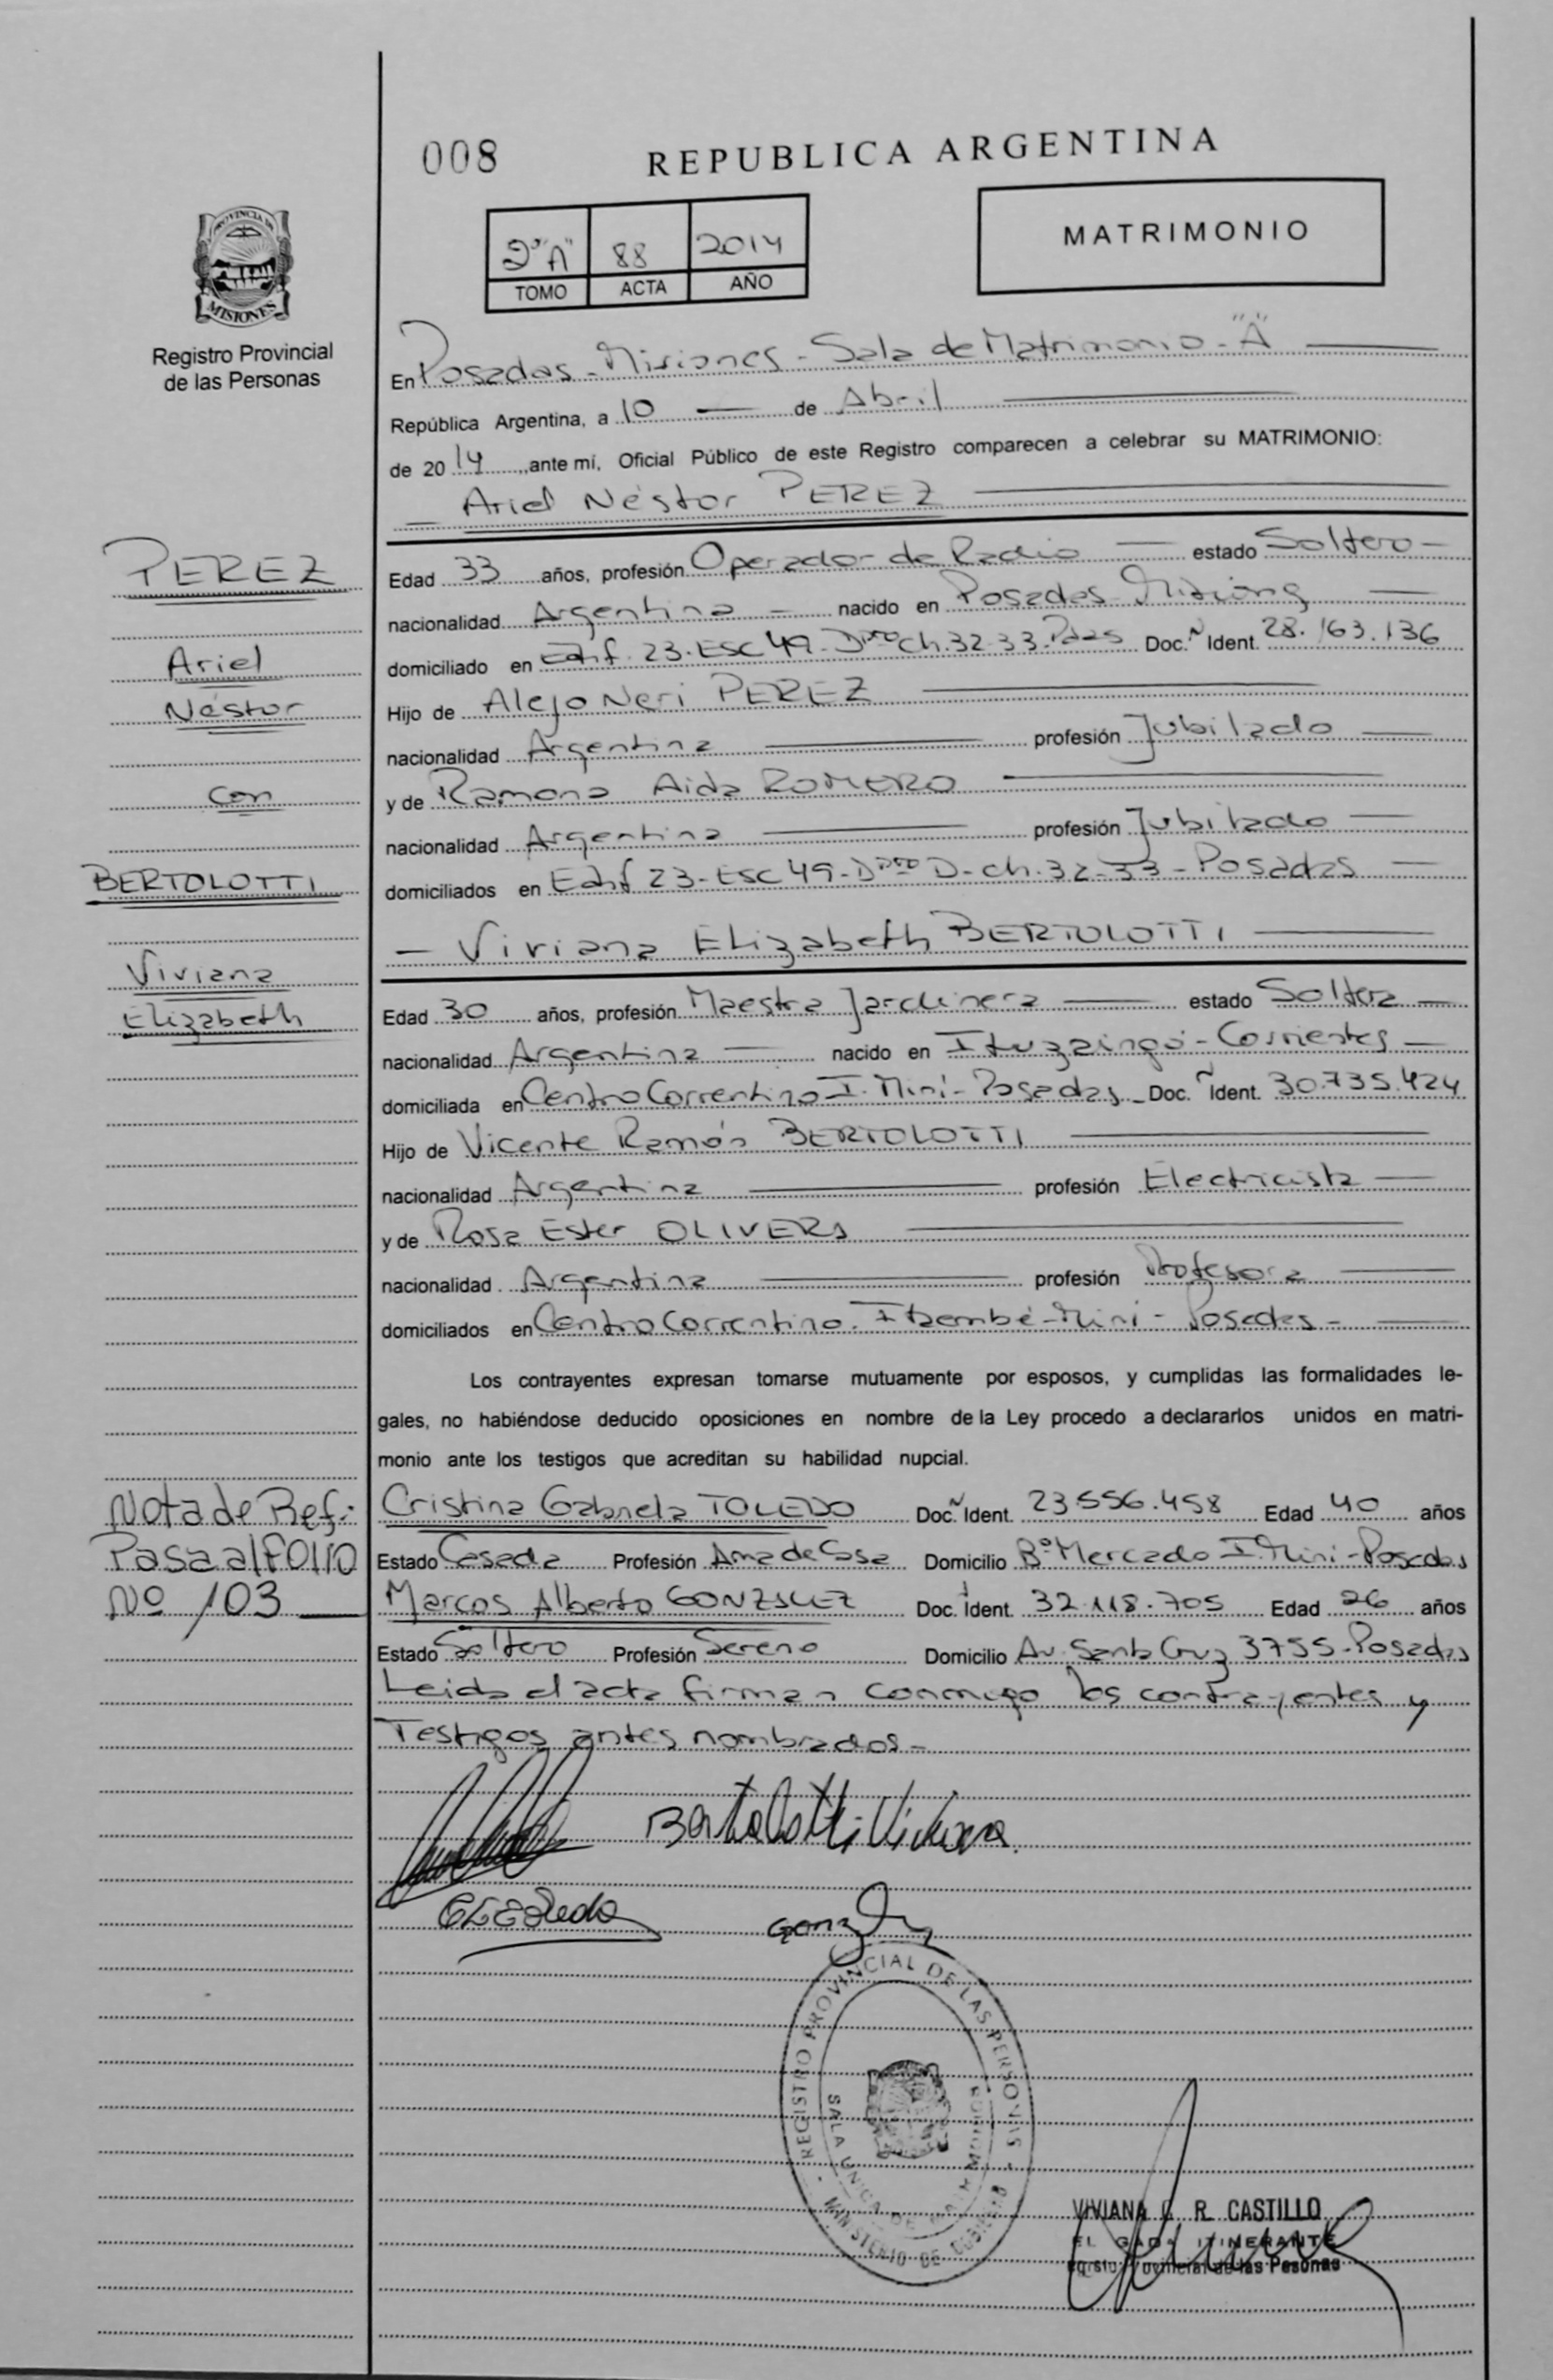 008 REPUBLICA ARGENTINA
PROVINCIA DE
MISIONES
Registro Provincial
de las Personas
2º "A" 88 2014
TOMO ACTA AÑO
MATRIMONIO
En Posadas - Misiones - Sala de Matrimonio - "A"
República Argentina, a 10 de Abril
de 2014, ante mí, Oficial Público de este Registro comparecen a celebrar su MATRIMONIO:
Ariel Néstor PEREZ
PEREZ
Ariel
Néstor
con
BERTOLOTTI
Viviana
Elizabeth
Edad 33 años, profesión Operador de Radio estado Soltero
nacionalidad Argentina nacido en Posadas Misiones
domiciliado en Edif. 23. Esc 49. Dpto Ch. 32-33. Pdas Doc. N Ident. 28.163.136
Hijo de Alejo Neri PEREZ
nacionalidad Argentina profesión Jubilado
y de Ramona Aida ROMERO
nacionalidad Argentina profesión Jubilado
domiciliados en Edif 23 - Esc 49 - Dpto D - ch. 32-33 - Posadas
Viviana Elizabeth BERTOLOTTI
Edad 30 años, profesión Maestra Jardinera estado Soltera
nacionalidad Argentina nacido en Ituzaingó - Corrientes
domiciliada en Centro Correntino I. Miní - Posadas Doc. Ident. 30.735.424
Hijo de Vicente Ramón BERTOLOTTI
nacionalidad Argentina profesión Electricista
y de Rosa Ester OLIVERA
nacionalidad Argentina profesión Profesora
domiciliados en Centro Correntino. Itaembé - Miní - Posadas
Los contrayentes expresan tomarse mutuamente por esposos, y cumplidas las formalidades le-
gales, no habiéndose deducido oposiciones en nombre de la Ley procedo a declararlos unidos en matri-
monio ante los testigos que acreditan su habilidad nupcial.
Nota de Ref:
Pasa al FOLIO
Nº 103
Cristina Gabriela TOLEDO Doc. Ident. 23.556.458 Edad 40 años
Estado Casada Profesión Ama de Casa Domicilio Bº Mercado I. Mini - Posadas
Marcos Alberto GONZALEZ Doc. Ident. 32.118.705 Edad 26 años
Estado Soltero Profesión Sereno Domicilio Av. Santa Cruz 3755 - Posadas
Leida el acta firman conmigo los contrayentes y
Testigos antes nombrados -
Bertolotti Viviana
REGISTRO PROVINCIAL DE LAS PERSONAS
SALA UNICA DE
MINISTERIO DE GOBIERNO
VIVIANA R. CASTILLO
ITINERANTE
de las Pesonas